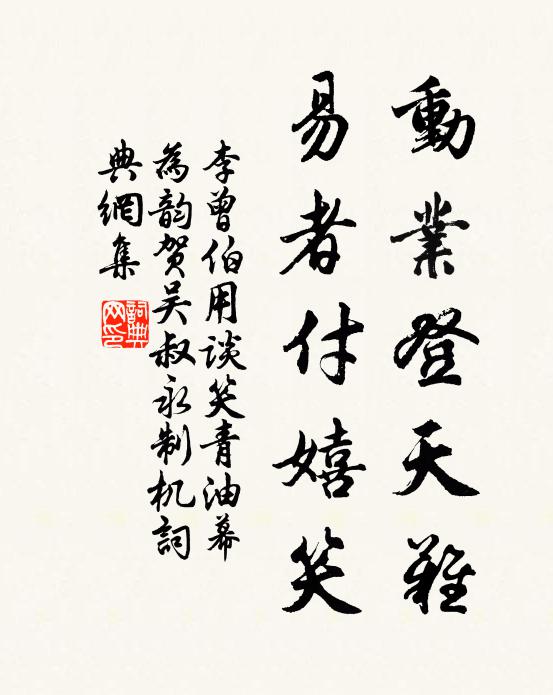 動業登天難
易者付嬉笑
李曾伯用談笑青油幕
為韵贺吴叔永制机詞
典網集
詞典
网印